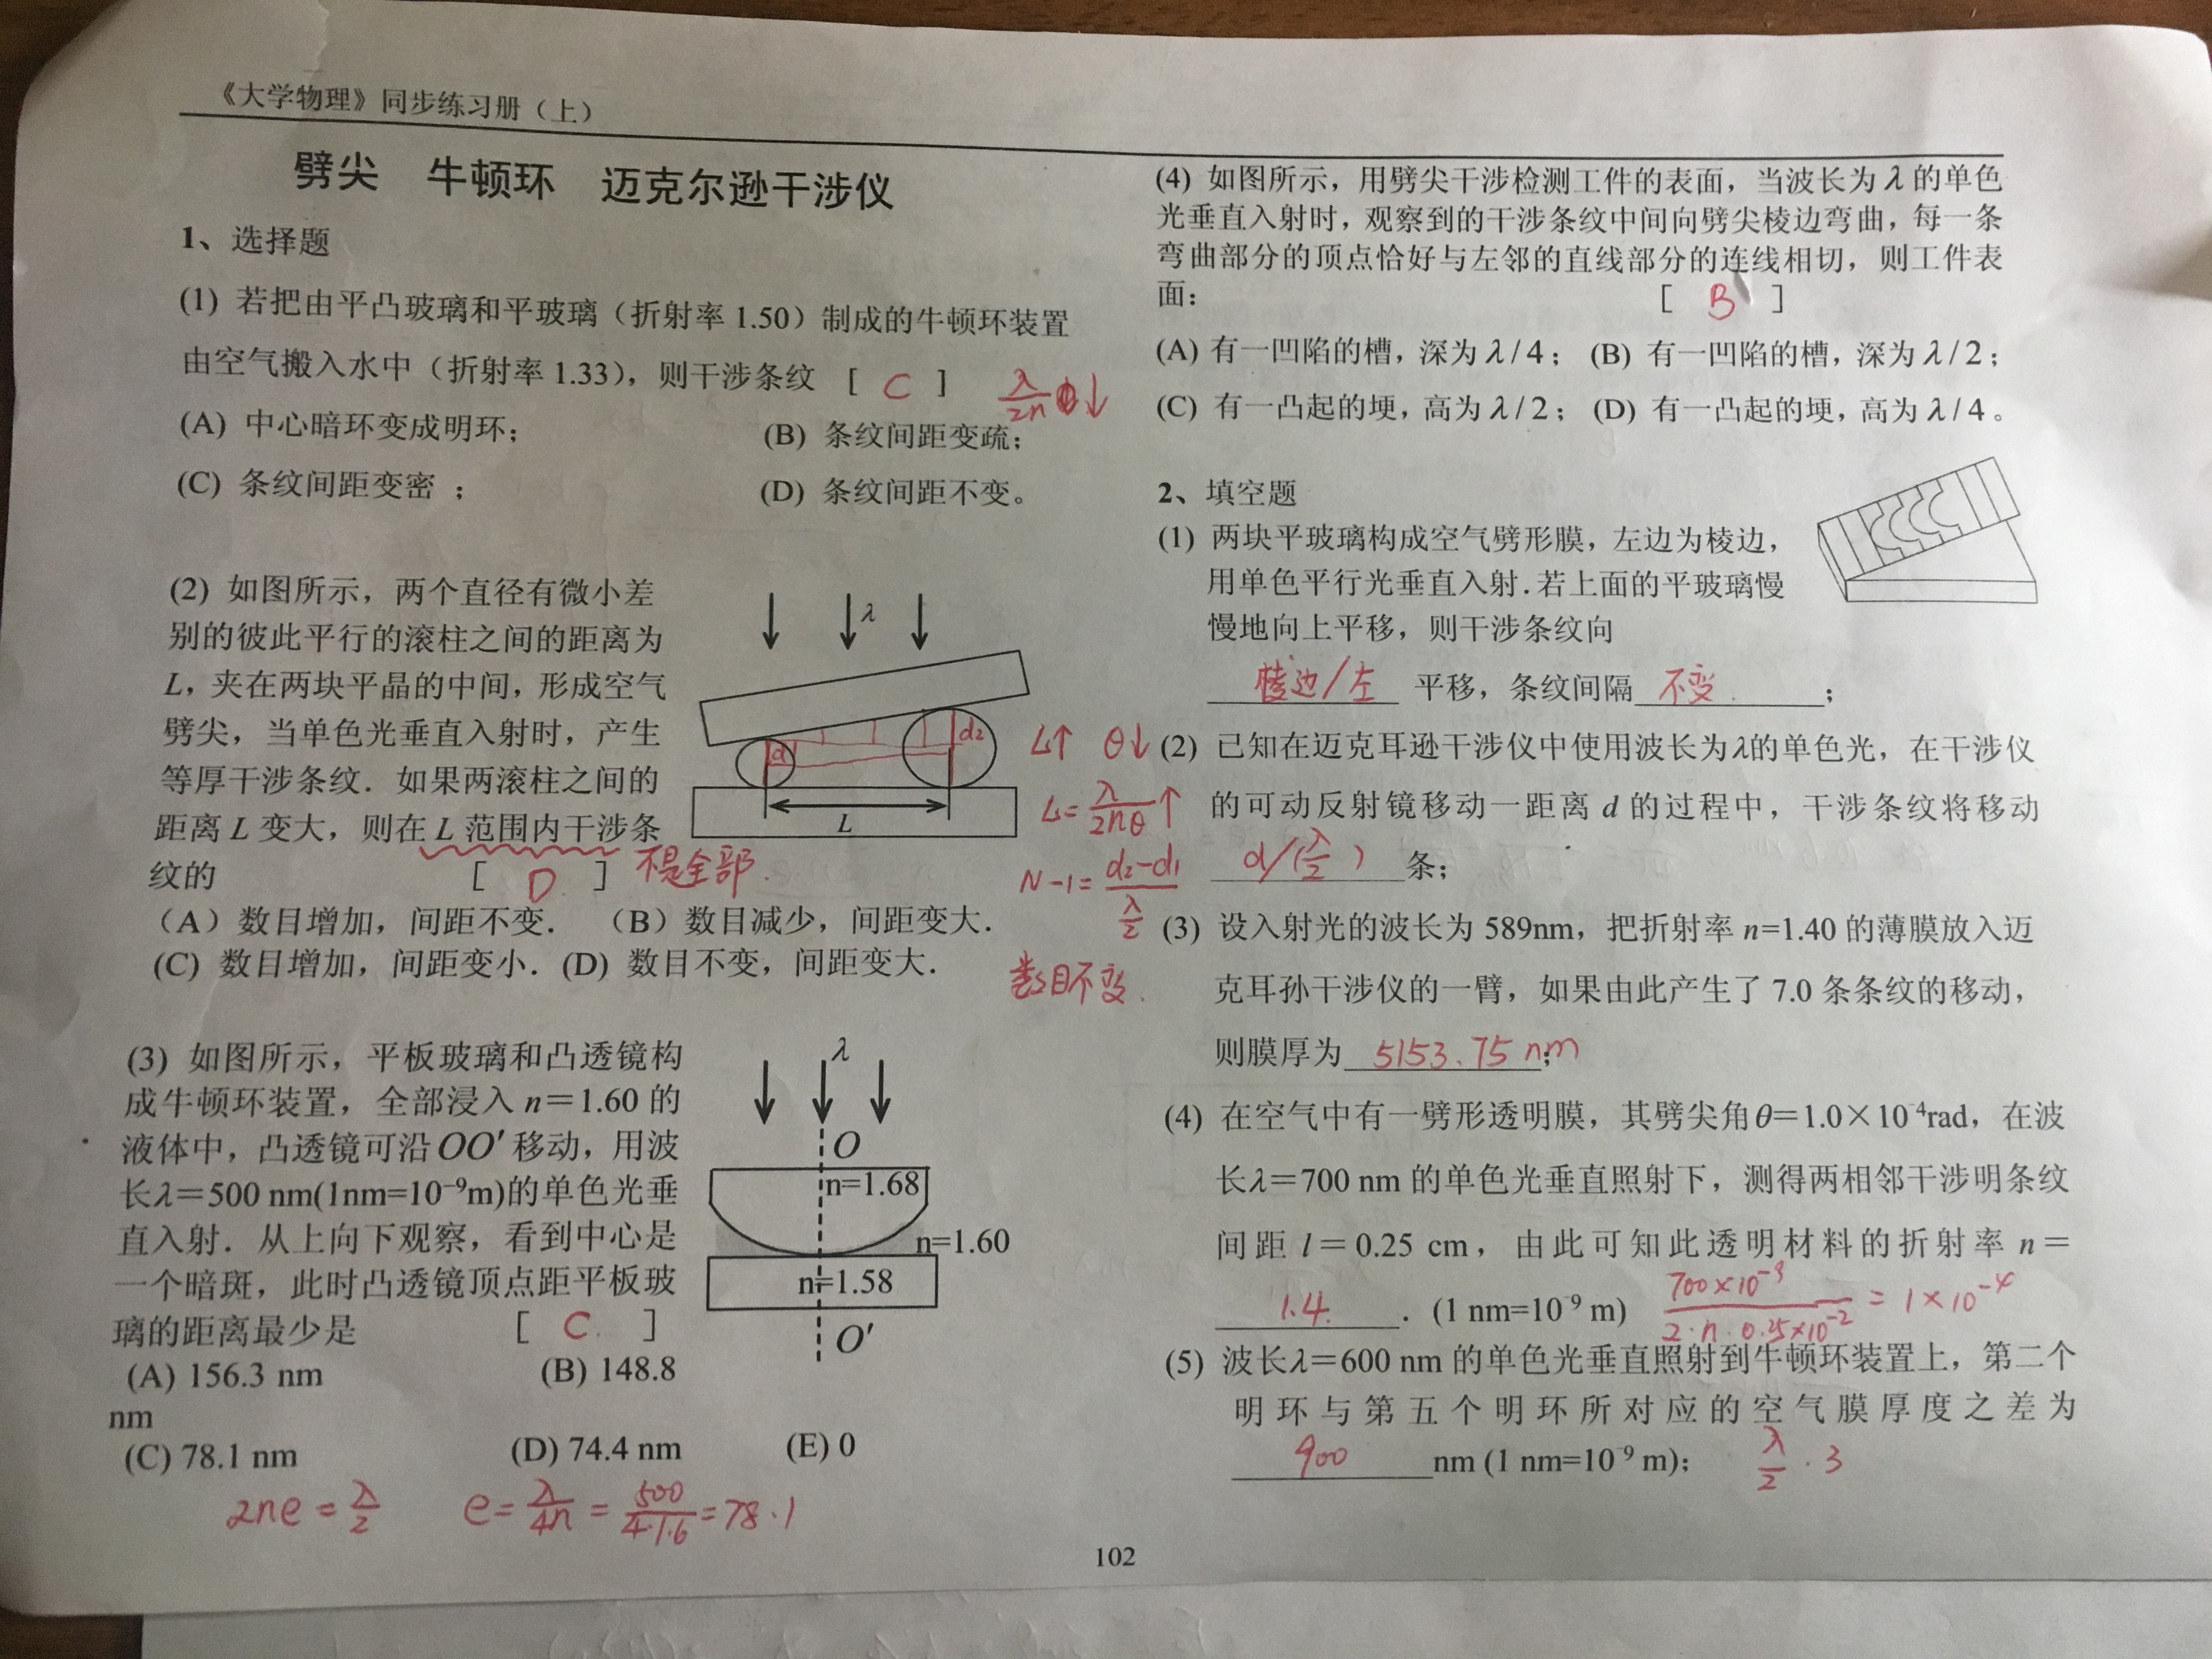 《大学物理》同步练习册（上）
劈尖 牛顿环 迈克尔逊干涉仪
1、选择题
(1) 若把由平凸玻璃和平玻璃（折射率 1.50）制成的牛顿环装置
由空气搬入水中（折射率 1.33），则干涉条纹 [ C ] λ/2n ↓
(A) 中心暗环变成明环； (B) 条纹间距变疏；
(C) 条纹间距变密 ； (D) 条纹间距不变。
(2) 如图所示，两个直径有微小差
别的彼此平行的滚柱之间的距离为
L，夹在两块平晶的中间，形成空气
劈尖，当单色光垂直入射时，产生
等厚干涉条纹．如果两滚柱之间的
距离 L 变大，则在 L 范围内干涉条
纹的 [ D ] 不是全部.
(A) 数目增加，间距不变． (B) 数目减少，间距变大．
(C) 数目增加，间距变小．(D) 数目不变，间距变大．
λ
d
d₂
L
L↑ θ↓
L=λ/2nθ↑
N-1=(d₂-d₁)/(λ/2)
数目不变.
(3) 如图所示，平板玻璃和凸透镜构
成牛顿环装置，全部浸入 n＝1.60 的
液体中，凸透镜可沿 OO′ 移动，用波
长λ＝500 nm(1nm=10⁻⁹m)的单色光垂
直入射．从上向下观察，看到中心是
一个暗斑，此时凸透镜顶点距平板玻
璃的距离最少是 [ C. ]
(A) 156.3 nm (B) 148.8
nm
(C) 78.1 nm (D) 74.4 nm (E) 0
λ
O
n=1.68
n=1.60
n=1.58
O′
2ne = λ/2 e = λ/4n = 500/4·1.6 = 78.1
(4) 如图所示，用劈尖干涉检测工件的表面，当波长为 λ 的单色
光垂直入射时，观察到的干涉条纹中间向劈尖棱边弯曲，每一条
弯曲部分的顶点恰好与左邻的直线部分的连线相切，则工件表
面： [ B ]
(A) 有一凹陷的槽，深为 λ/4； (B) 有一凹陷的槽，深为 λ/2；
(C) 有一凸起的埂，高为 λ/2； (D) 有一凸起的埂，高为 λ/4。
2、填空题
(1) 两块平玻璃构成空气劈形膜，左边为棱边，
用单色平行光垂直入射.若上面的平玻璃慢
慢地向上平移，则干涉条纹向
棱边/左 平移，条纹间隔 不变. ；
(2) 已知在迈克耳逊干涉仪中使用波长为λ的单色光，在干涉仪
的可动反射镜移动一距离 d 的过程中，干涉条纹将移动
d/(λ/2) 条；
(3) 设入射光的波长为 589nm，把折射率 n=1.40 的薄膜放入迈
克耳孙干涉仪的一臂，如果由此产生了 7.0 条条纹的移动，
则膜厚为 5153.75 nm ；
(4) 在空气中有一劈形透明膜，其劈尖角θ＝1.0×10⁻⁴rad，在波
长λ＝700 nm 的单色光垂直照射下，测得两相邻干涉明条纹
间距 l＝0.25 cm，由此可知此透明材料的折射率 n＝
1.4. ．(1 nm=10⁻⁹ m) 700×10⁻⁹/2·n·0.25×10⁻² = 1×10⁻⁴
(5) 波长λ＝600 nm 的单色光垂直照射到牛顿环装置上，第二个
明环与第五个明环所对应的空气膜厚度之差为
900 nm (1 nm=10⁻⁹ m)； λ/2 · 3
102